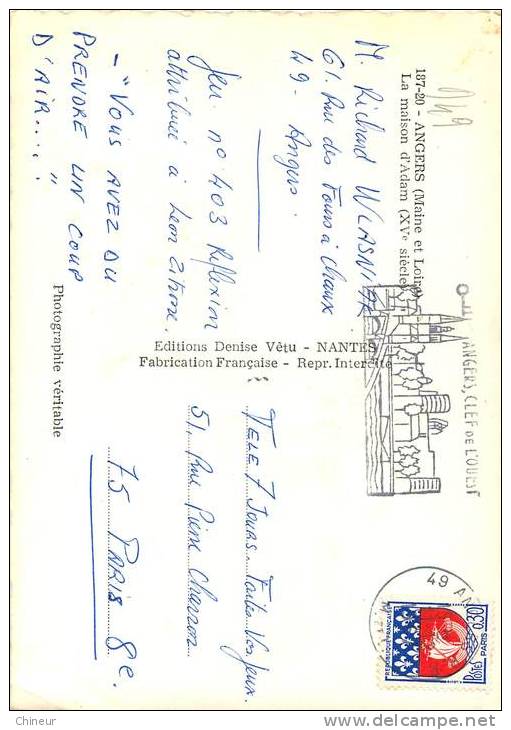 187-20 - ANGERS (Maine et Loire)
La maison d'Adam (XVe siècle)
949
M. Richard WLASNIAK
61. Rue des Fours à Chaux
49 - Angers.
Jeu n° 403 Réflexion
attribuée à Léon Zitrone.
- "VOUS AVEZ DU
PRENDRE UN COUP
D'AIR....."
Editions Denise Vêtu - NANTES
Fabrication Française - Repr. Interdite
Photographie véritable
ANGERS, CLEF DE L'OUEST
49 A
REPUBLIQUE FRANÇAISE
0,30
POSTES PARIS
TELE 7 JOURS. Faites Vos Jeux.
51, Rue Pierre Charron
75 PARIS 8e.
Chineur
www.delcampe.net